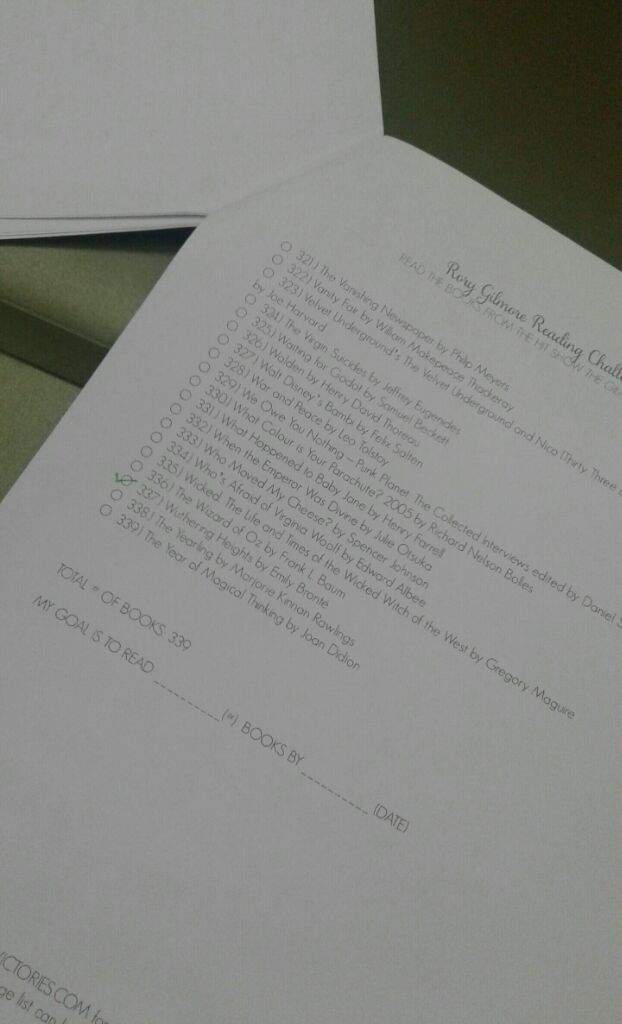 Rory Gilmore Reading Challe
READ THE BOOKS FROM THE HIT SHOW THE GI
321) The Vanishing Newspaper by Philip Meyers
322) Vanity Fair by William Makepeace Thackeray
323) Velvet Underground's The Velvet Underground and Nico (Thirty Three a
by Joe Harvard
324) The Virgin Suicides by Jeffrey Eugenides
325) Waiting for Godot by Samuel Beckett
326) Walden by Henry David Thoreau
327) Walt Disney's Bambi by Felix Salten
328) War and Peace by Leo Tolstoy
329) We Owe You Nothing – Punk Planet: The Collected Interviews edited by Daniel S
330) What Colour is Your Parachute? 2005 by Richard Nelson Bolles
331) What Happened to Baby Jane by Henry Farrell
332) When the Emperor Was Divine by Julie Otsuka
333) Who Moved My Cheese? by Spencer Johnson
334) Who's Afraid of Virginia Woolf by Edward Albee
335) Wicked: The Life and Times of the Wicked Witch of the West by Gregory Maguire
336) The Wizard of Oz by Frank L Baum
337) Wuthering Heights by Emily Brontë
338) The Yearling by Marjorie Kinnan Rawlings
339) The Year of Magical Thinking by Joan Didion
TOTAL # OF BOOKS: 339
MY GOAL IS TO READ __________ (#) BOOKS BY __________ (DATE)
ICTORIES.COM for
ge list can